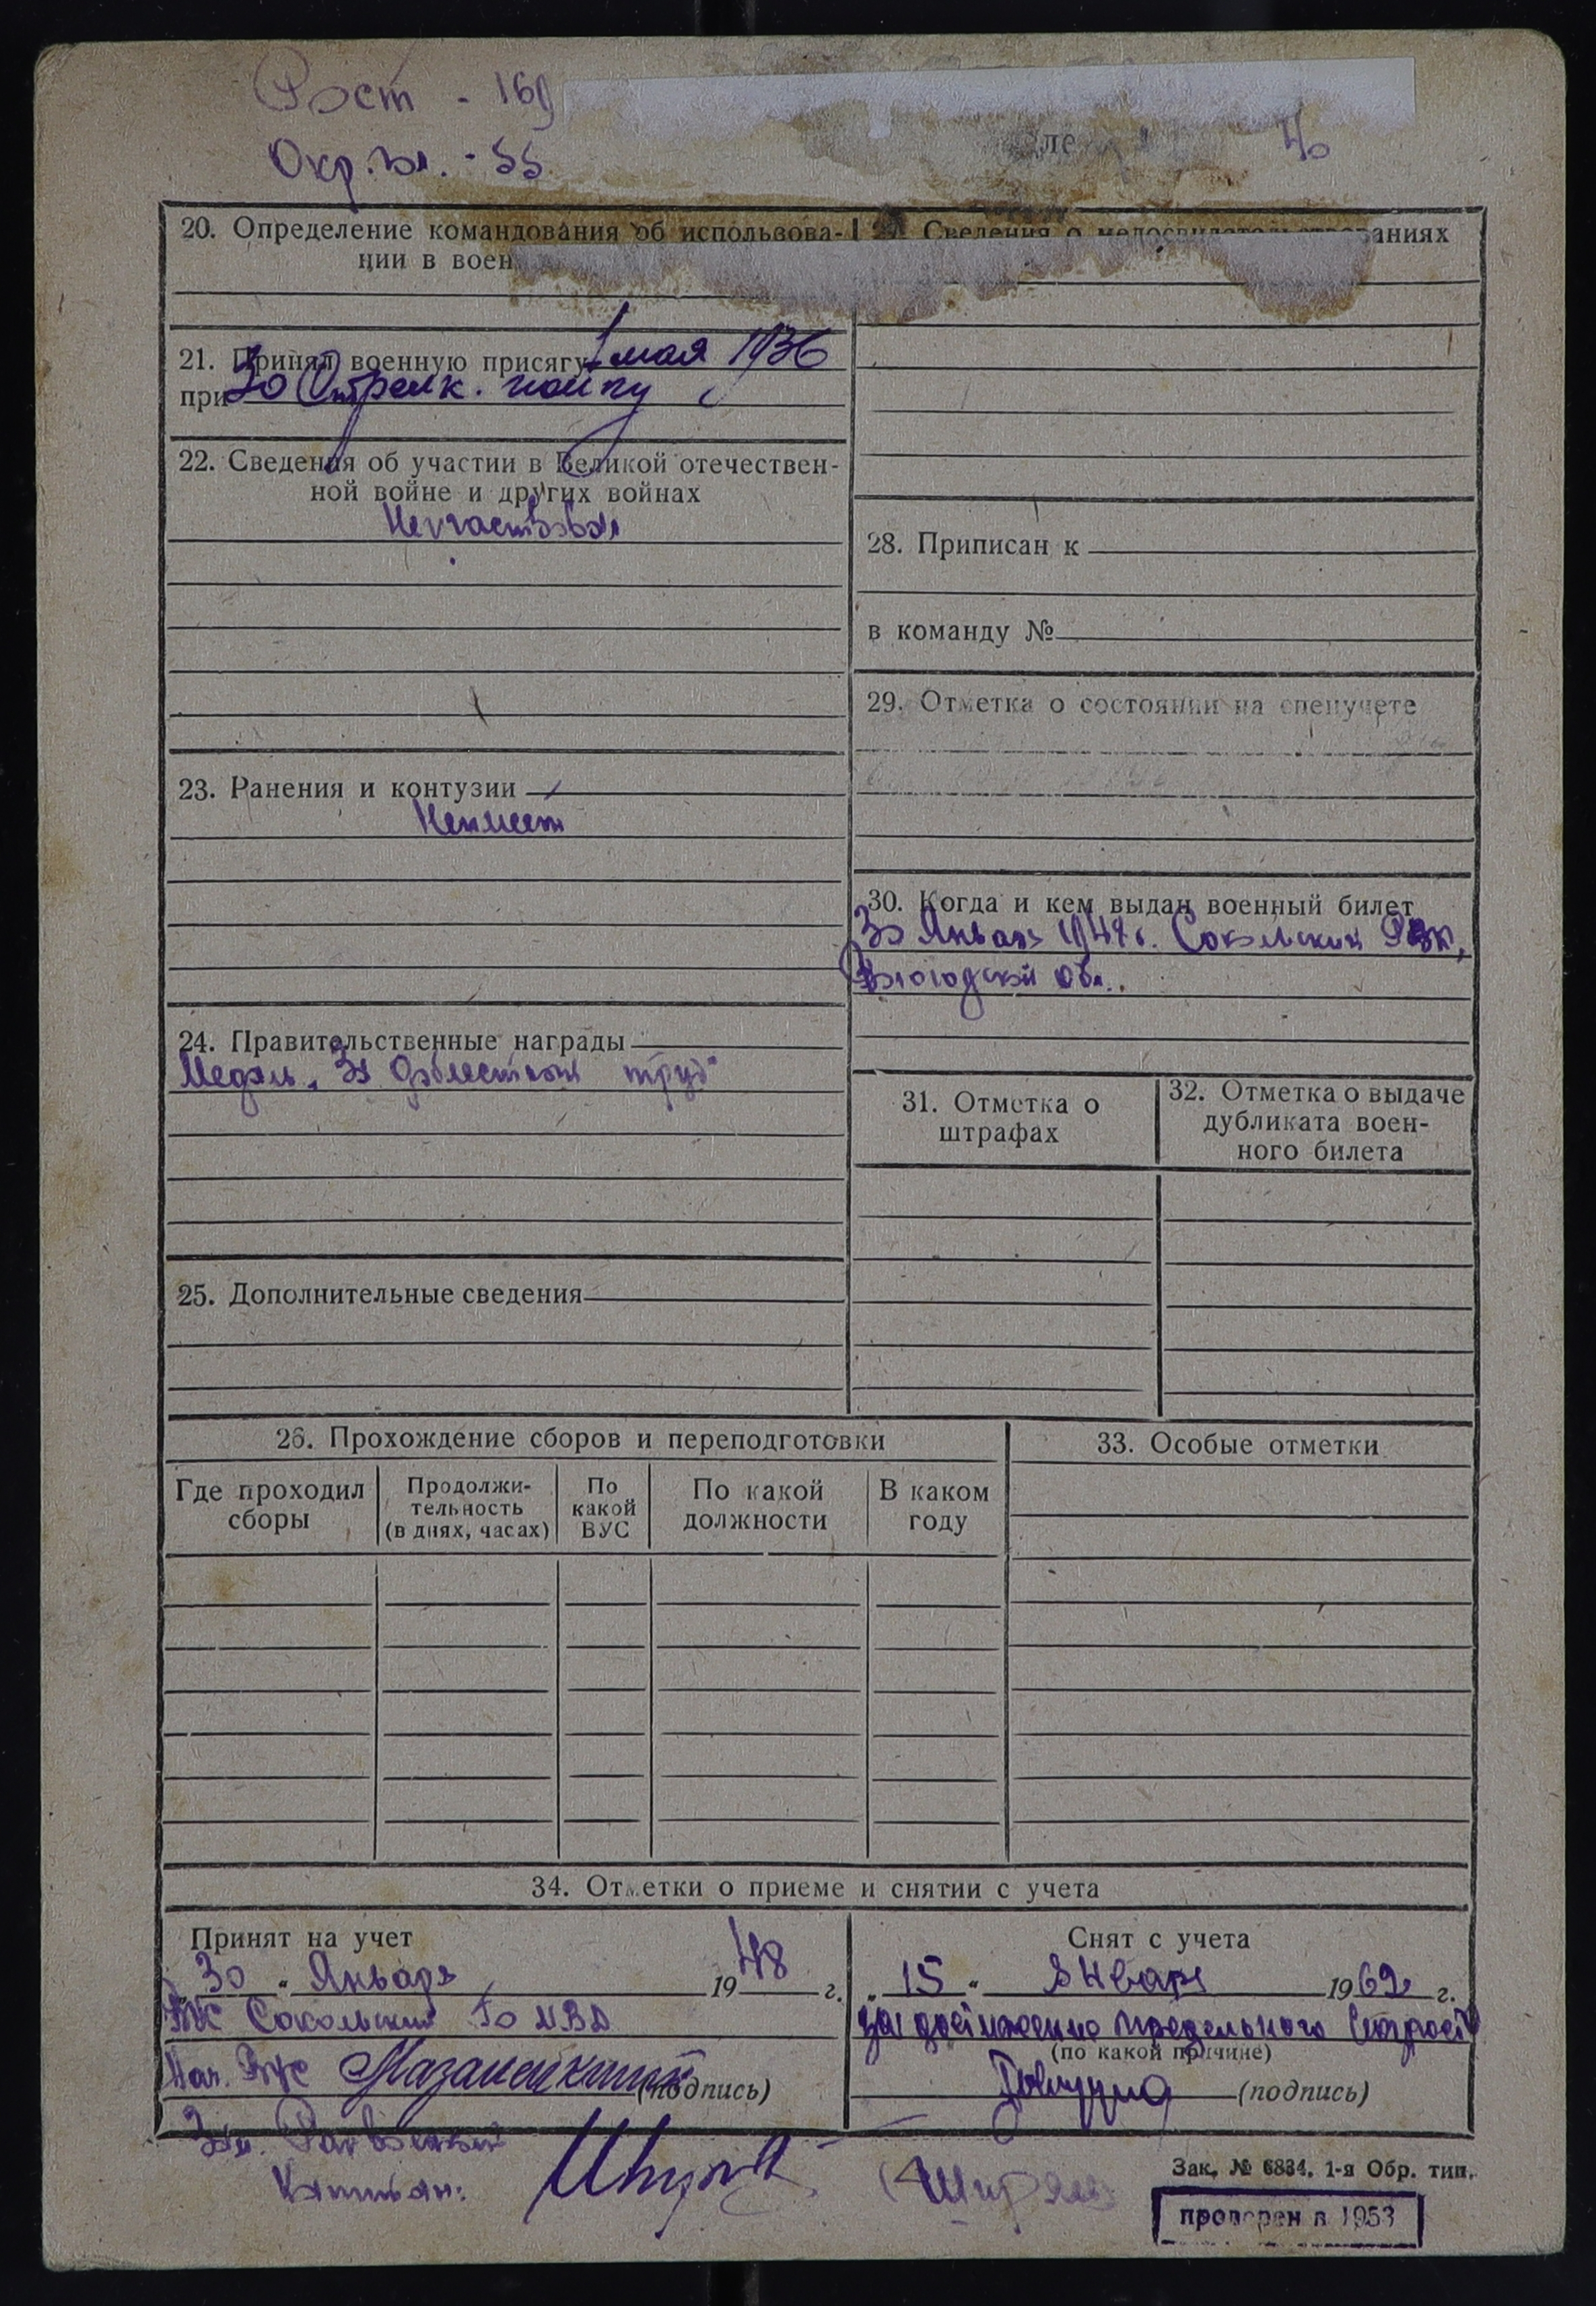 Рост - 169
Окр. гол. - 55
20. Определение командования об использова-
ции в воен
21. Принял военную присягу 1 мая 1936
при 30 Стрелк. полку
22. Сведения об участии в Великой отечествен-
ной войне и других войнах
Неучаствовал
23. Ранения и контузии
Неимеет
24. Правительственные награды
Медаль „За доблестный труд"
25. Дополнительные сведения
27. Сведения о медосвидетельствованиях
28. Приписан к
в команду №
29. Отметка о состоянии на спецучете
30. Когда и кем выдан военный билет
30 Январь 1948 г. Сокольский РВК,
Вологодской обл.
31. Отметка о
штрафах
32. Отметка о выдаче
дубликата воен-
ного билета
26. Прохождение сборов и переподготовки
Где проходил
сборы
Продолжи-
тельность
(в днях, часах)
По
какой
ВУС
По какой
должности
В каком
году
33. Особые отметки
34. Отметки о приеме и снятии с учета
Принят на учет
„30" Январь 1948 г.
Сокольский ГО МВД
Нач.
(подпись)
Снят с учета
„15" января 1962 г.
за достижение предельного возраста
(по какой причине)
(подпись)
Зам.
Капитан:
Зак. № 6834. 1-я Обр. тип.
проверен в 1953